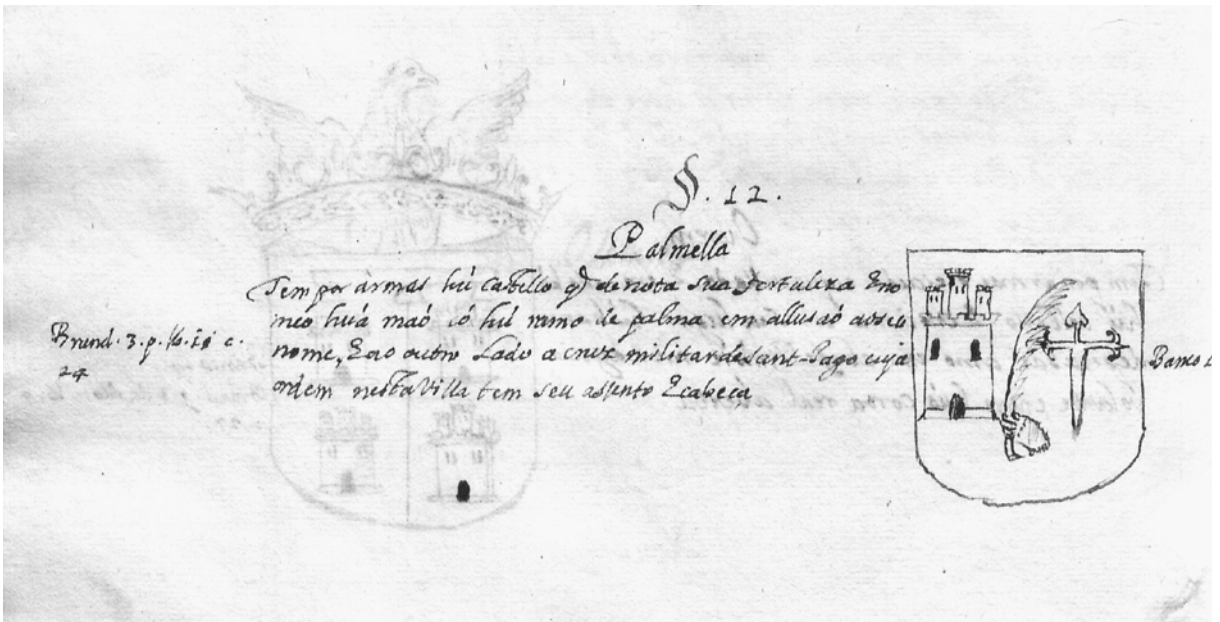 §. 12.
Palmella
Tem por armas hú castillo q̃ denota sua fortaleza E no
meo huá maó có hú ramo de palma em allusaó ao seu
nome, E ao outro Lado a cruz militar de Sant-Iago cuja
ordem nesta Villa tem seu assento E cabeça
Brand. 3. p. l. c.
24